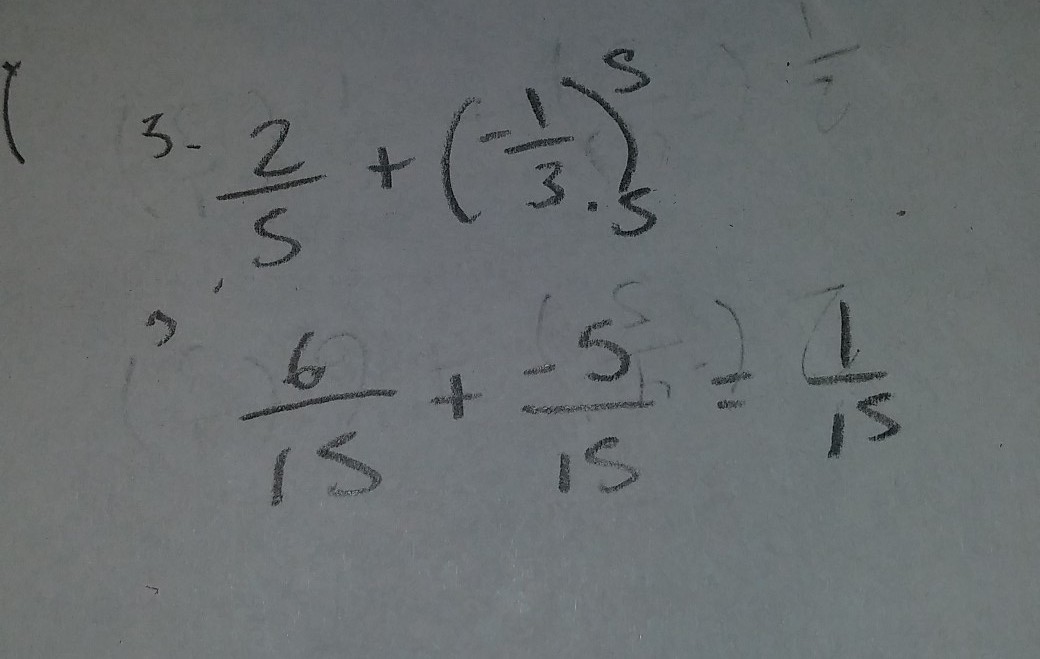 3- 2/5 + (-1/3 . 5)5
6/15 + -5/15 = 1/15